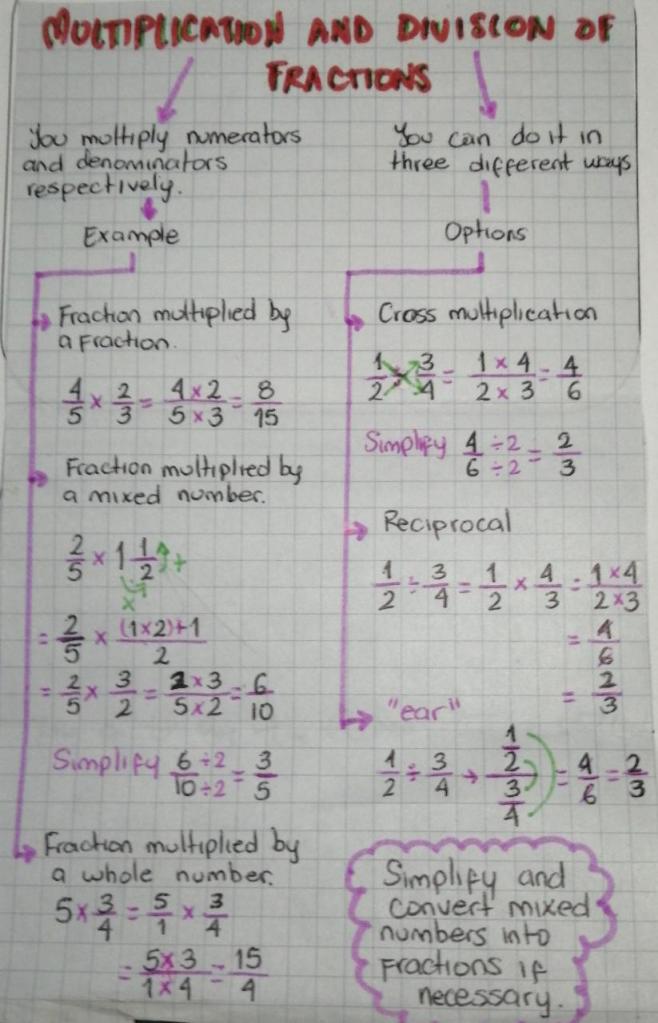 MULTIPLICATION AND DIVISION OF
FRACTIONS
You multiply numerators
and denominators
respectively.
Example
Fraction multiplied by
a Fraction.
4/5 × 2/3 = 4×2/5×3 = 8/15
Fraction multiplied by
a mixed number.
2/5 × 1 1/2 +
×
= 2/5 × (1×2)+1/2
= 2/5 × 3/2 = 2×3/5×2 = 6/10
Simplify 6÷2/10÷2 = 3/5
Fraction multiplied by
a whole number.
5 × 3/4 = 5/1 × 3/4
= 5×3/1×4 = 15/4
You can do it in
three different ways
Options
Cross multiplication
1/2 ÷ 3/4 = 1×4/2×3 = 4/6
Simplify 4÷2/6÷2 = 2/3
Reciprocal
1/2 ÷ 3/4 = 1/2 × 4/3 = 1×4/2×3
= 4/6
= 2/3
"ear"
1/2 ÷ 3/4 → 1/2/3/4 = 4/6 = 2/3
Simplify and
convert mixed
numbers into
Fractions if
necessary.